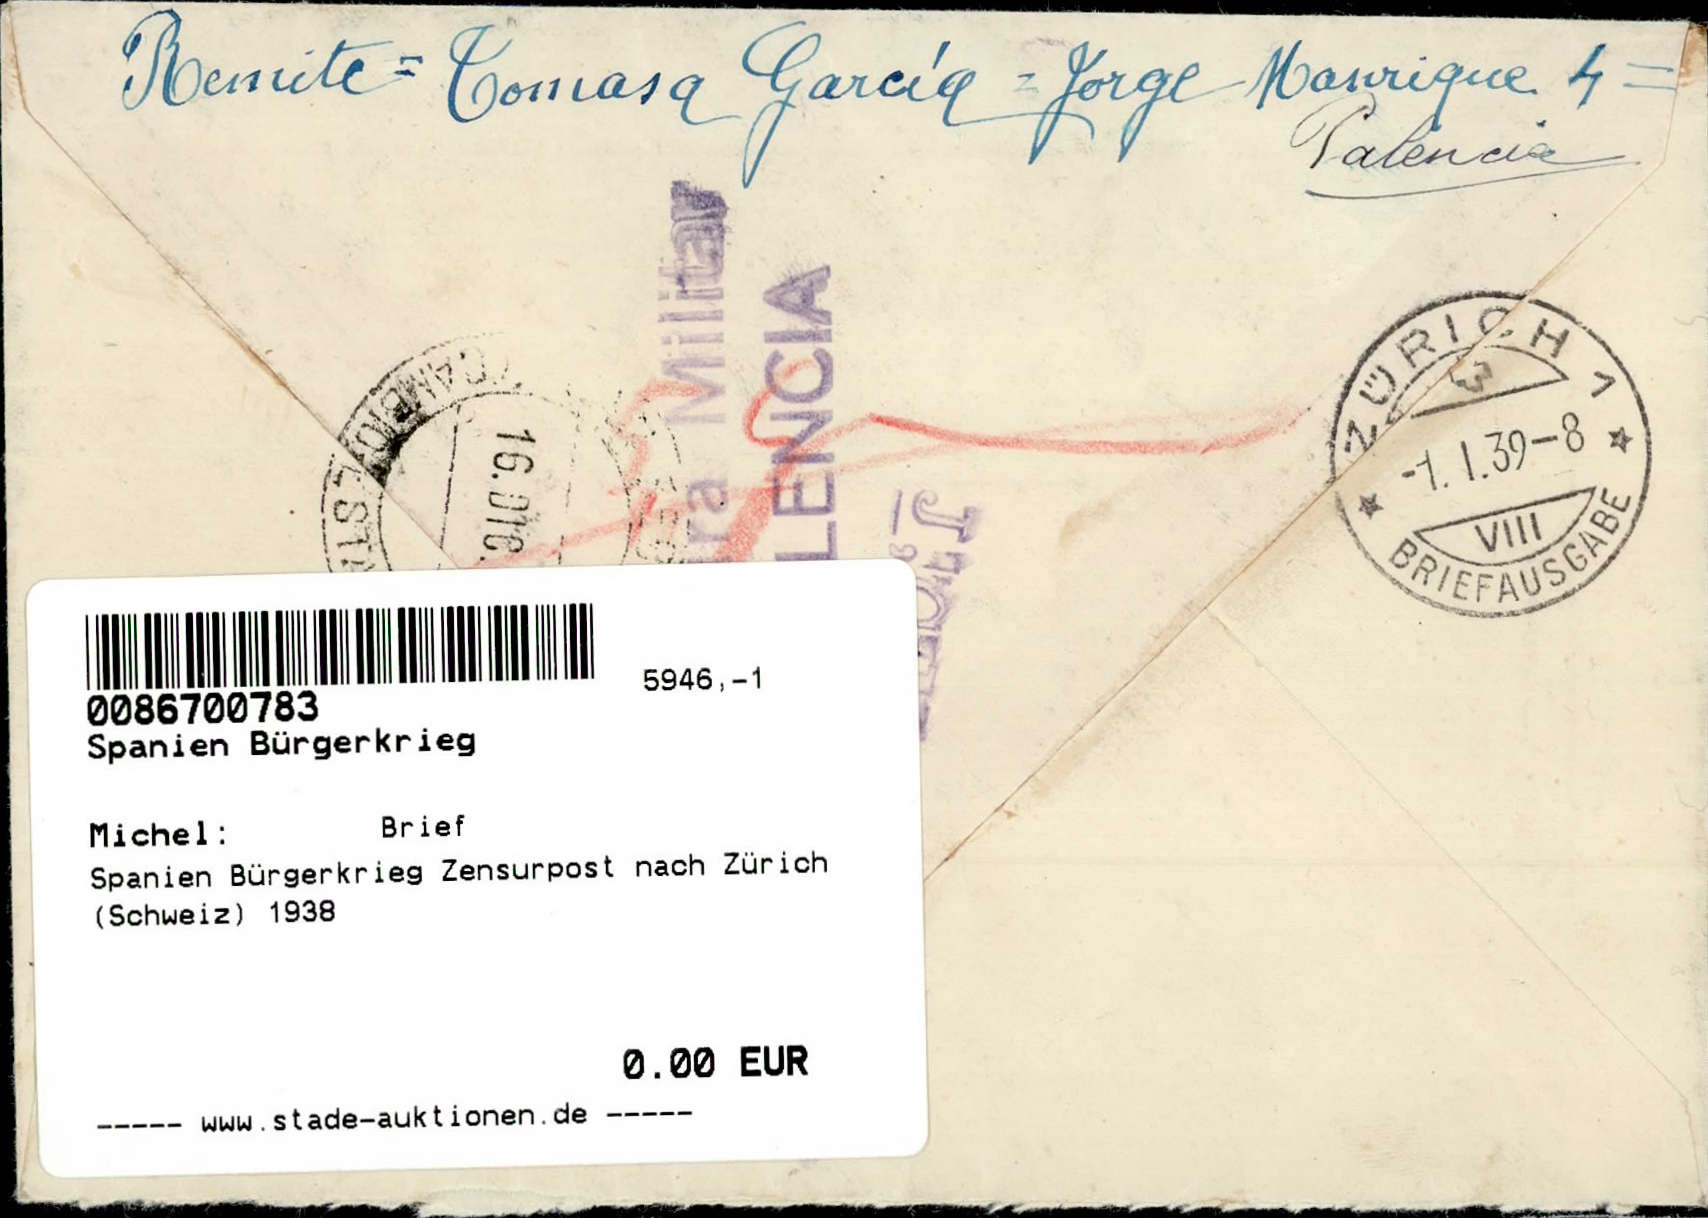 Remite = Tomasa García = Jorge Manrique 4 =
Palencia
Militar
LENCIA
16.DIC.
ZÜRICH 1
3
-1.I.39-8
VIII
BRIEFAUSGABE
0086700783
5946,-1
Spanien Bürgerkrieg
Michel: Brief
Spanien Bürgerkrieg Zensurpost nach Zürich
(Schweiz) 1938
0.00 EUR
----- www.stade-auktionen.de -----